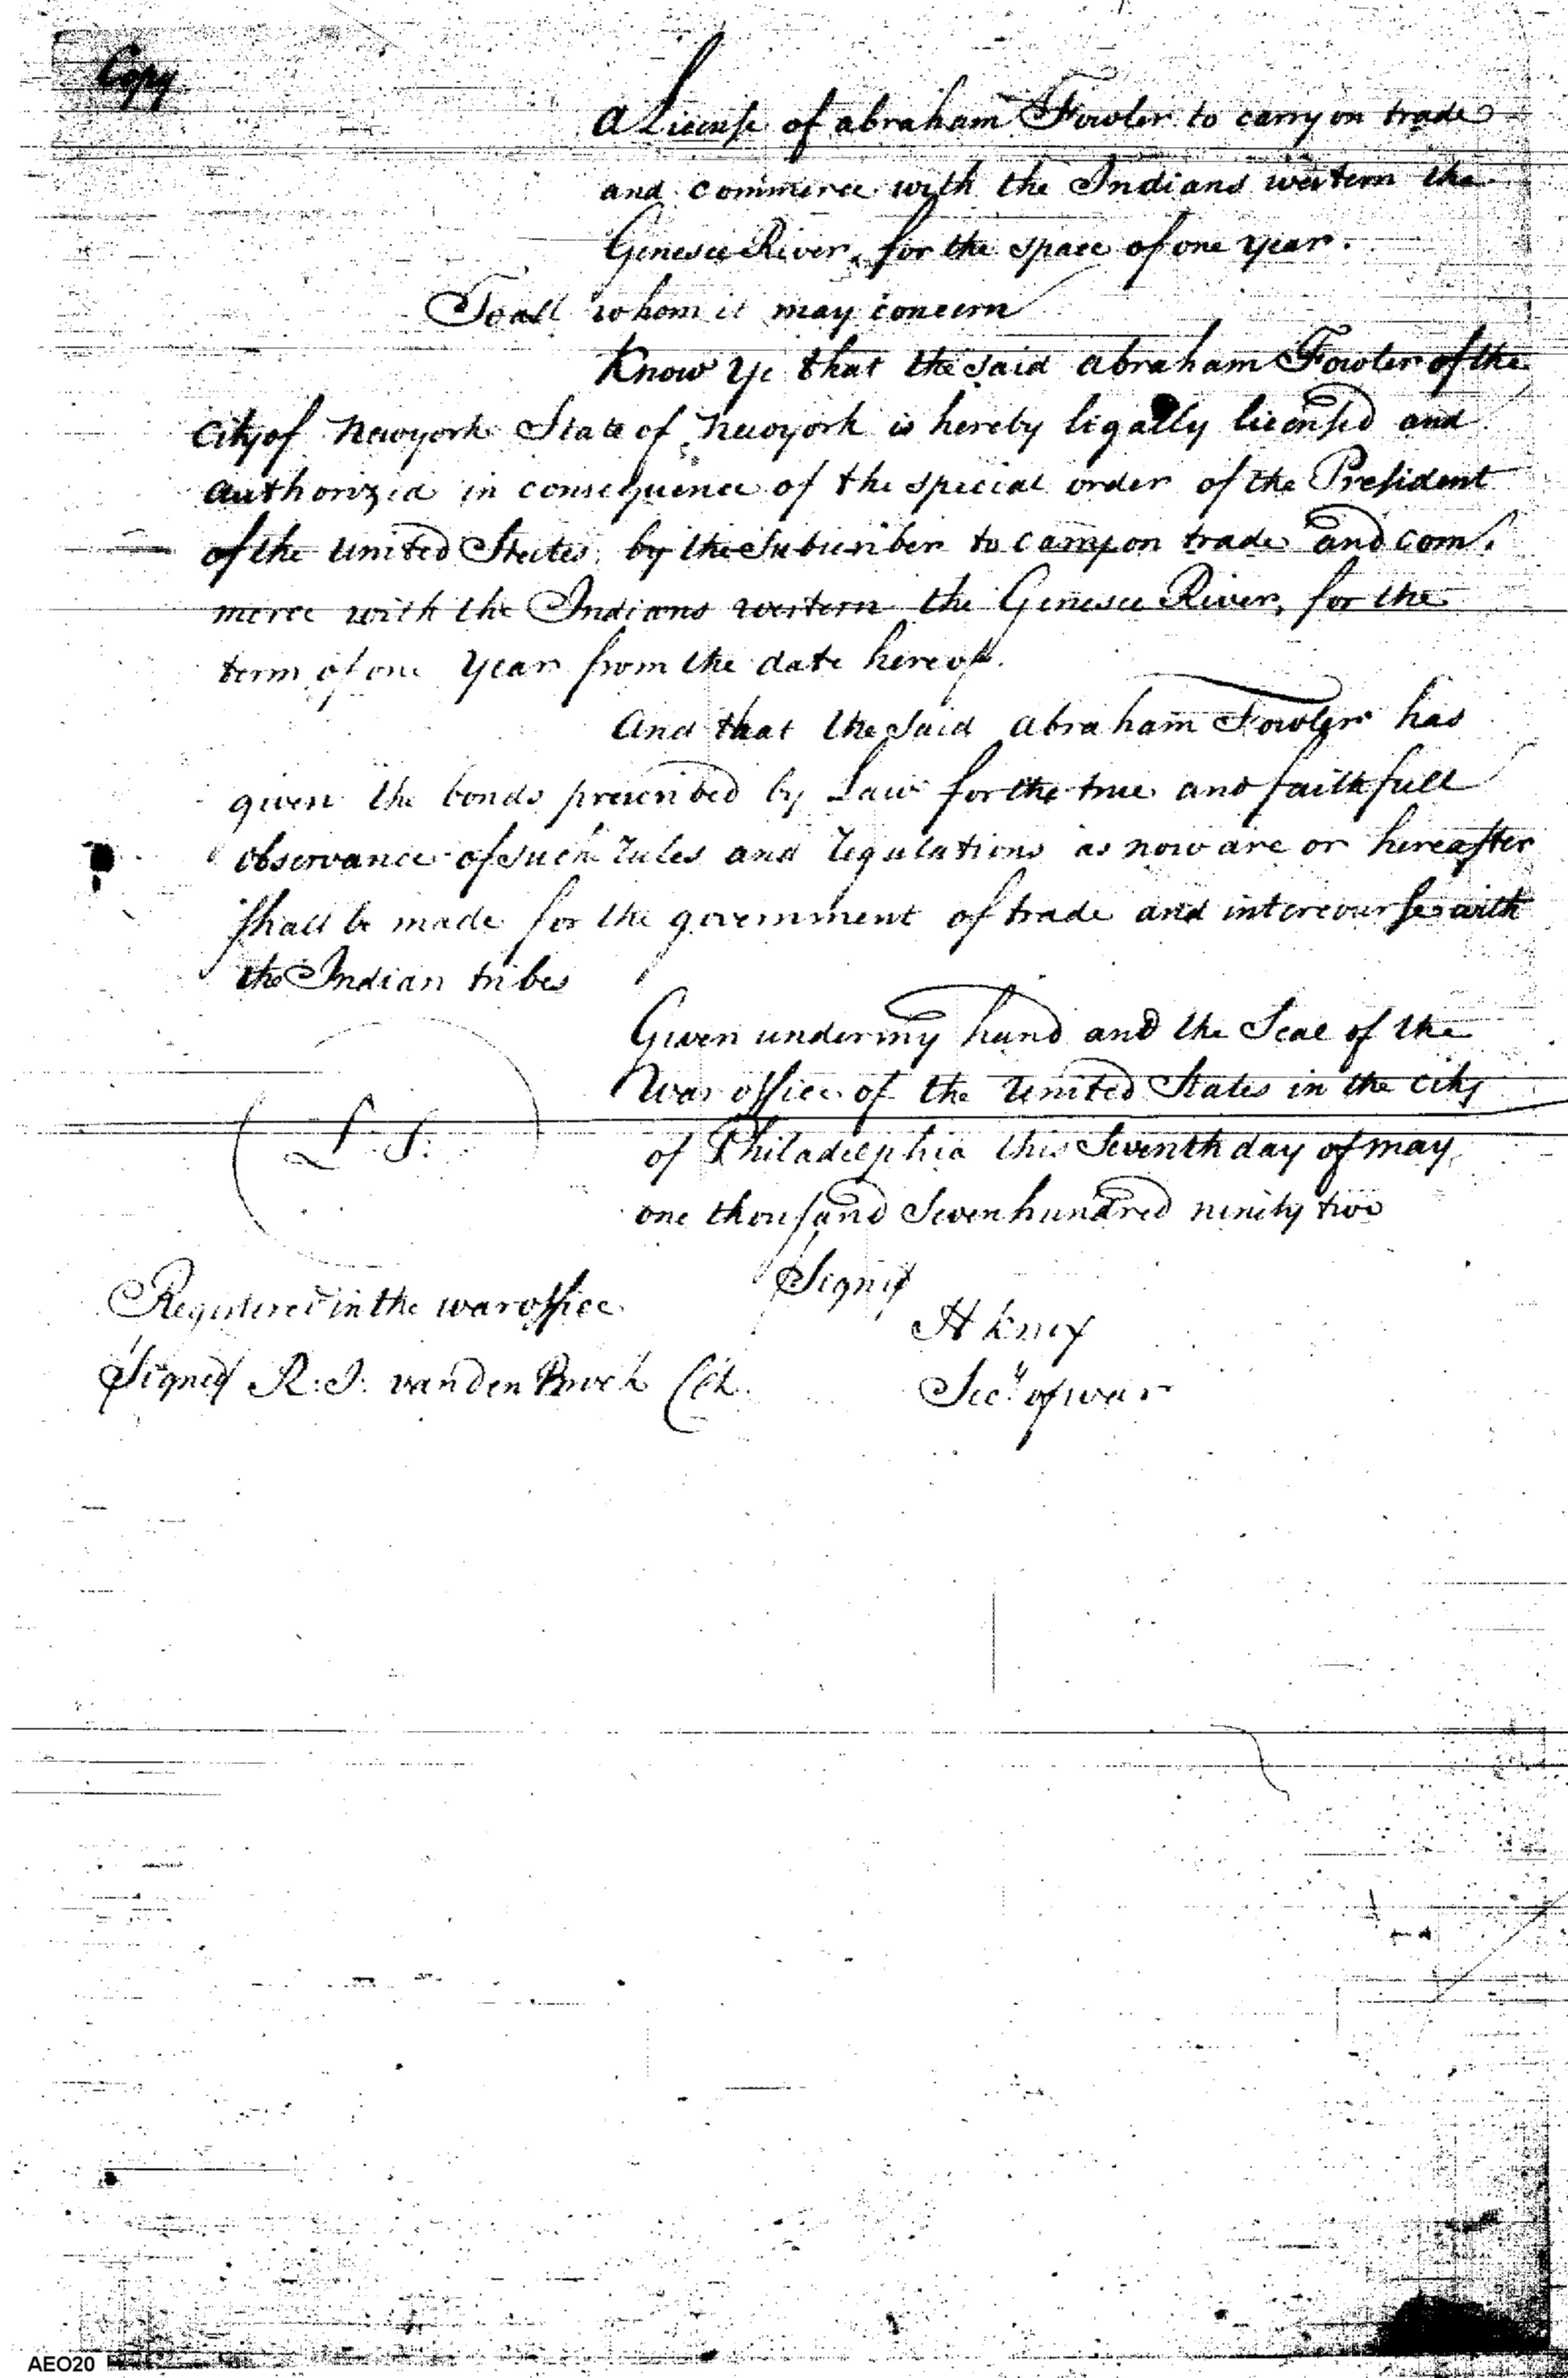 Copy
A License of abraham Fowler to carry on trade
and commerce with the Indians western the
Genesee River, for the space of one year.
To all whom it may concern
Know ye that the said abraham Fowler of the
City of Newyork State of Newyork is hereby ligally licensed and
authorized in consequence of the special order of the President
of the United States, by the Subscriber to carry on trade and com.
merce with the Indians western the Genesee River, for the
term of one year from the date hereof.
And that the said abraham Fowler has
given the bonds prescribed by Law for the true and faithfull
observance of such rules and regulations as now are or hereafter
shall be made for the government of trade and intercourse with
the Indian tribes
Given under my hand and the Seal of the
War office of the United States in the city
of Philadelphia this Seventh day of may
one thousand Seven hundred ninity two
L. S.
Signed
Registered in the war office
H Knox
Signed R: J: vanden Broek Clk.
Secy. of war
AEO20